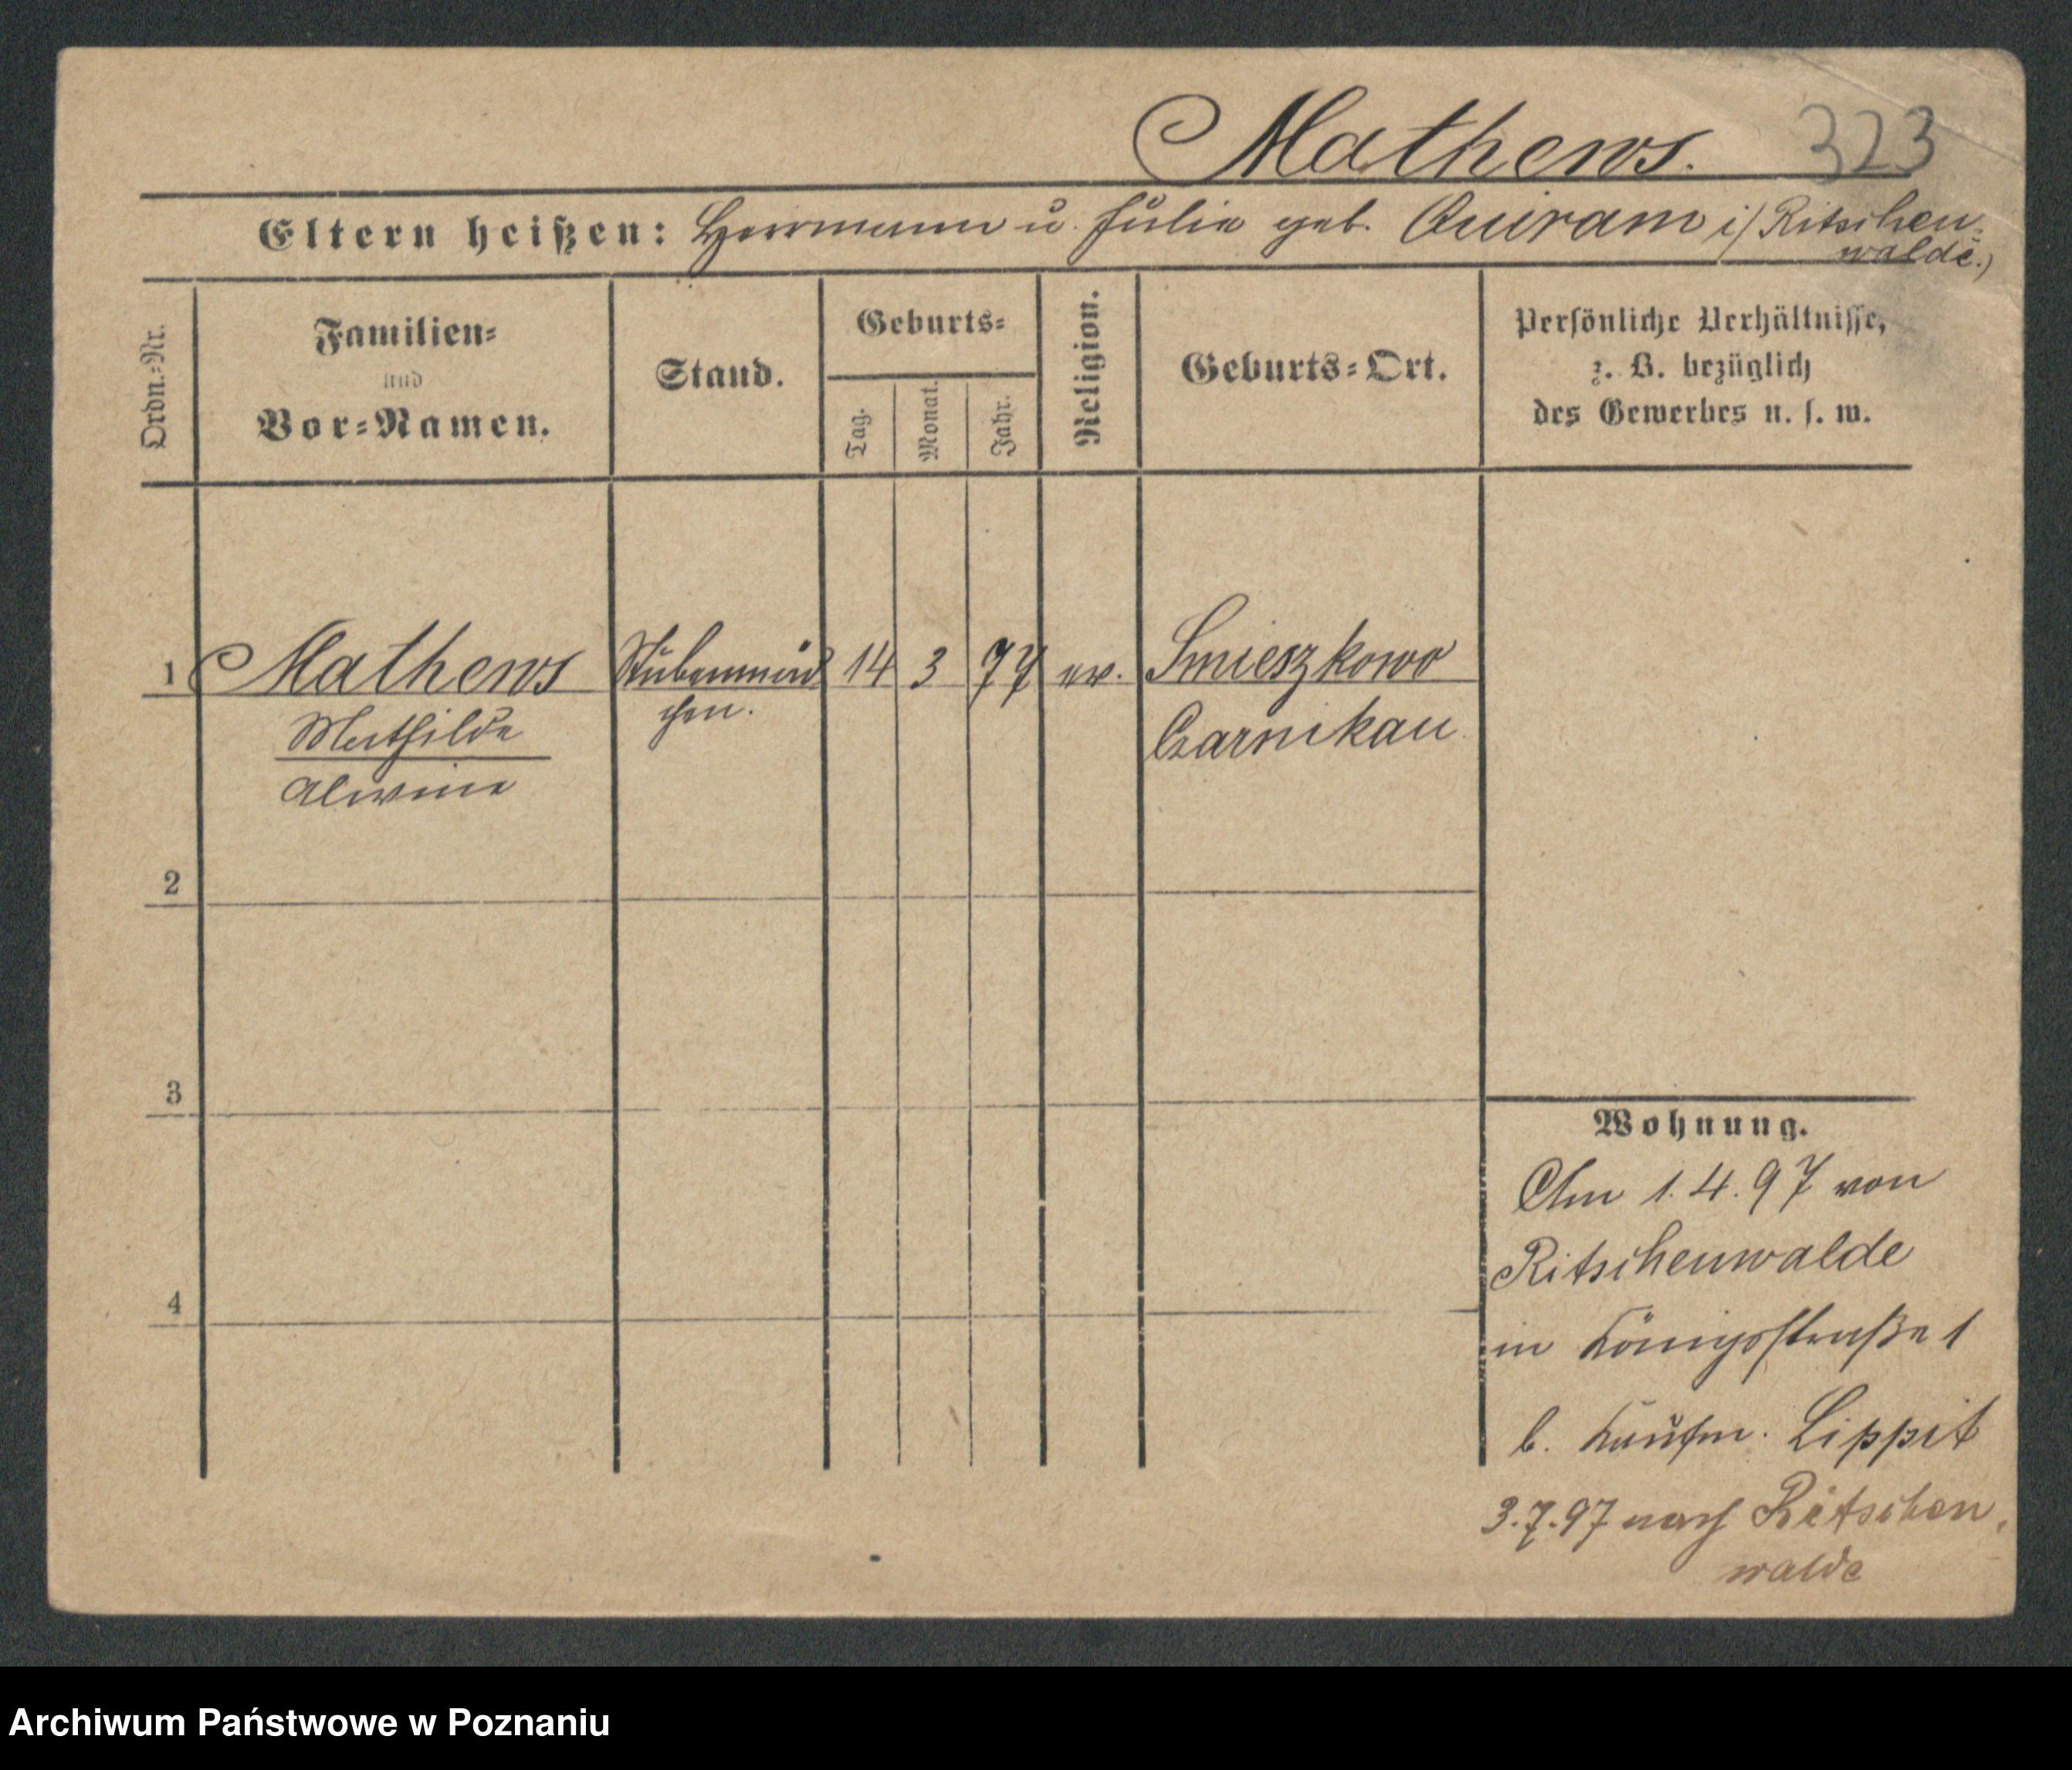 Mathews. 323
Eltern heißen: Herrmann u. Julie geb. Quiram i/ Ritschen-
walde.)
Ordn.-Nr.
Familien-
und
Vor-Namen.
Stand.
Geburts-
Tag.
Monat.
Jahr.
Religion.
Geburts-Ort.
Persönliche Verhältnisse,
z. B. bezüglich
des Gewerbes u. s. w.
1 Mathews Stubenmäd 14 3 77 ev. Smieszkowo
Mathilde chen. Czarnikau
Alwine
2
3
4
Wohnung.
Am 1.4.97 von
Ritschenwalde
in Königsstraße 1
b. Kaufm. Lippit
3.7.97 nach Ritschen
walde
Archiwum Państwowe w Poznaniu